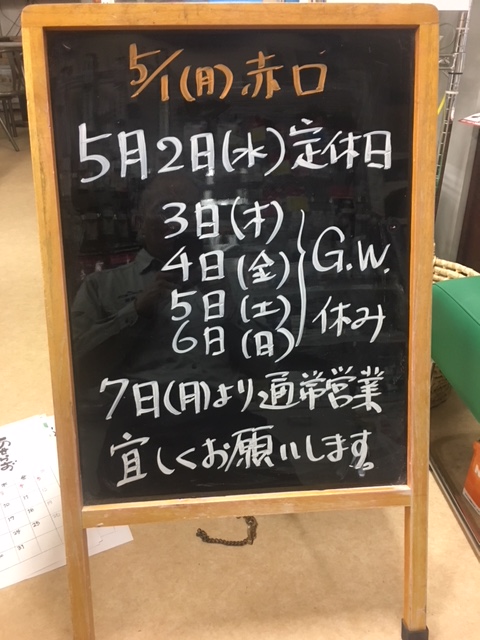 5/1(月)赤口
5月2日(水)定休日
3日(木)
4日(金)
5日(土)
6日(日)
G.W.
休み
7日(月)より通常営業
宜しくお願いします。